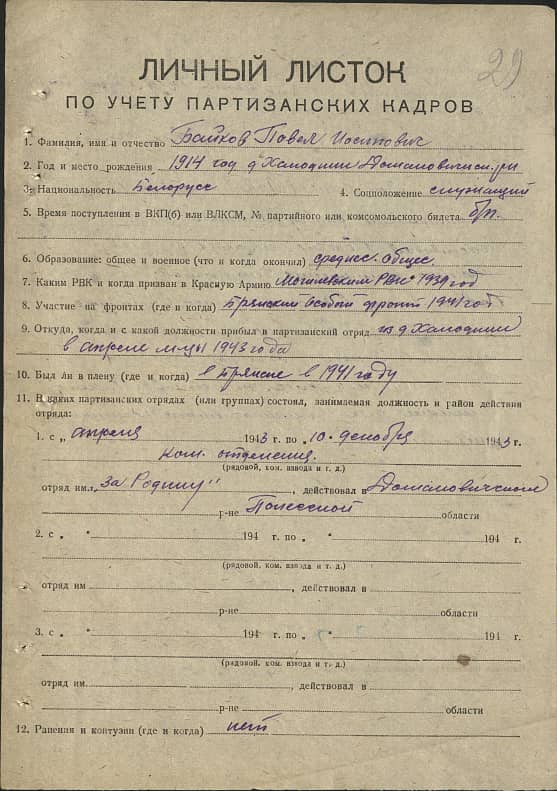 29
ЛИЧНЫЙ ЛИСТОК
ПО УЧЕТУ ПАРТИЗАНСКИХ КАДРОВ
1. Фамилия, имя и отчество Байков Павел Иосипович
2. Год и место рождения 1914 год д. Халодники Домановичск. р-н
3. Национальность Белорусс 4. Соцположение служащий
5. Время поступления в ВКП(б) или ВЛКСМ, № партийного или комсомольского билета б/п.
6. Образование: общее и военное (что и когда окончил) среднее общее
7. Каким РВК и когда призван в Красную Армию РВК 1939 год
8. Участие на фронтах (где и когда) особый фронт 1941 год
9. Откуда, когда и с какой должности прибыл в партизанский отряд из д. Халодники
в апреле м-цы 1943 года
10. Был ли в плену (где и когда) в 1941 году
11. В каких партизанских отрядах (или группах) состоял, занимаемая должность и район действия
отряда:
1. с „ апреля 1943 г. по „ 10 " декабря 1943 г.
Ком. отделения
(рядовой, ком. взвода и т. д.)
отряд им. „За Родину", действовал в Домановичском
р-не Полесской области
2. с „ " 194 г. по „ " 194 г.
(рядовой, ком. взвода и т. д.)
отряд им , действовал в
р-не области
3. с „ " 194 г. по „ " 194 г.
(рядовой, ком. взвода и т. д.)
отряд им. , действовал в
р-не области
12. Ранения и контузии (где и когда) нет